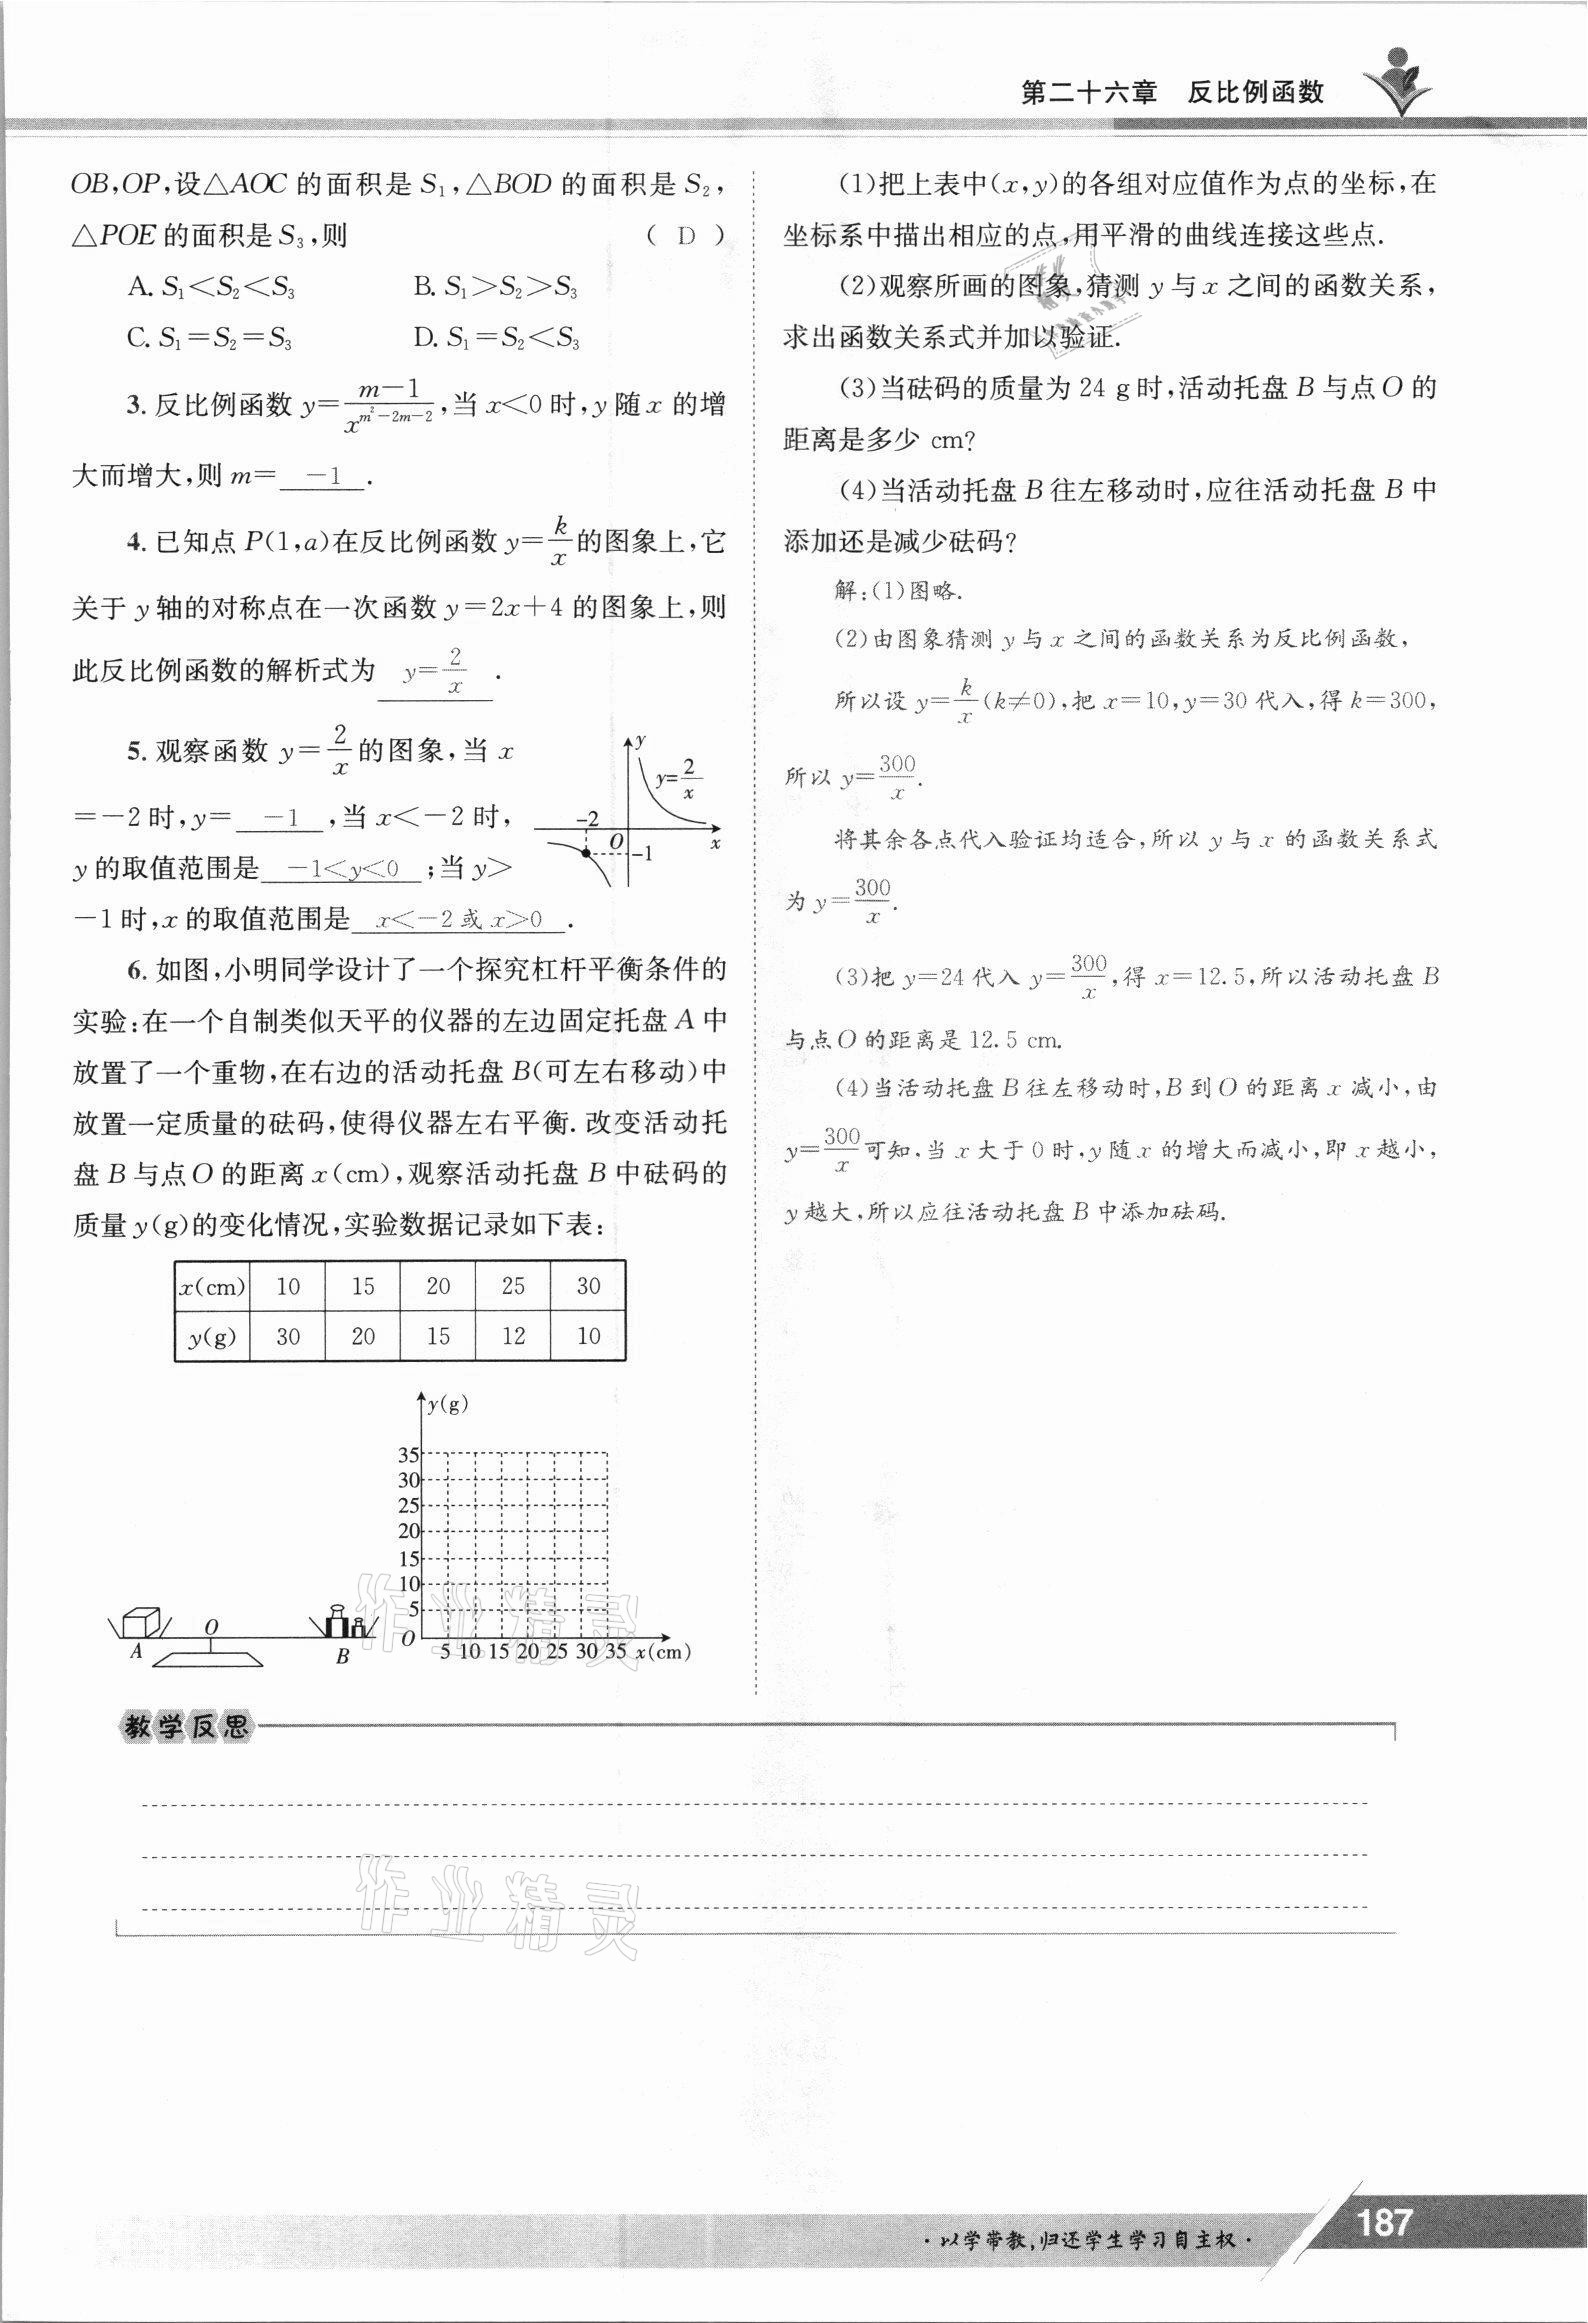 第二十六章　反比例函数
OB,OP,设△AOC 的面积是 S₁,△BOD 的面积是 S₂,
△POE 的面积是 S₃,则 ( D )
A. S₁<S₂<S₃　B. S₁>S₂>S₃
C. S₁=S₂=S₃　D. S₁=S₂<S₃
3. 反比例函数 y=(m-1)/x^(m²-2m-2),当 x<0 时,y 随 x 的增
大而增大,则 m= -1 .
4. 已知点 P(1,a)在反比例函数 y=k/x 的图象上,它
关于 y 轴的对称点在一次函数 y=2x+4 的图象上,则
此反比例函数的解析式为 y=2/x .
5. 观察函数 y=2/x 的图象,当 x
=-2 时,y= -1 ,当 x<-2 时,
y 的取值范围是 -1<y<0 ;当 y>
-1 时,x 的取值范围是 x<-2 或 x>0 .
y
y=2/x
-2
O
x
-1
6. 如图,小明同学设计了一个探究杠杆平衡条件的
实验:在一个自制类似天平的仪器的左边固定托盘 A 中
放置了一个重物,在右边的活动托盘 B(可左右移动)中
放置一定质量的砝码,使得仪器左右平衡. 改变活动托
盘 B 与点 O 的距离 x(cm),观察活动托盘 B 中砝码的
质量 y(g)的变化情况,实验数据记录如下表:
x(cm) 10 15 20 25 30
y(g) 30 20 15 12 10
y(g)
35
30
25
20
15
10
5
O
5 10 15 20 25 30 35 x(cm)
O
A
B
(1)把上表中(x,y)的各组对应值作为点的坐标,在
坐标系中描出相应的点,用平滑的曲线连接这些点.
(2)观察所画的图象,猜测 y 与 x 之间的函数关系,
求出函数关系式并加以验证.
(3)当砝码的质量为 24 g 时,活动托盘 B 与点 O 的
距离是多少 cm?
(4)当活动托盘 B 往左移动时,应往活动托盘 B 中
添加还是减少砝码?
解:(1)图略.
(2)由图象猜测 y 与 x 之间的函数关系为反比例函数,
所以设 y=k/x(k≠0),把 x=10,y=30 代入,得 k=300,
所以 y=300/x.
将其余各点代入验证均适合,所以 y 与 x 的函数关系式
为 y=300/x.
(3)把 y=24 代入 y=300/x,得 x=12.5,所以活动托盘 B
与点 O 的距离是 12.5 cm.
(4)当活动托盘 B 往左移动时,B 到 O 的距离 x 减小,由
y=300/x 可知,当 x 大于 0 时,y 随 x 的增大而减小,即 x 越小,
y 越大,所以应往活动托盘 B 中添加砝码.
作业精灵
教学反思
作业精灵
·以学带教,归还学生学习自主权·
187